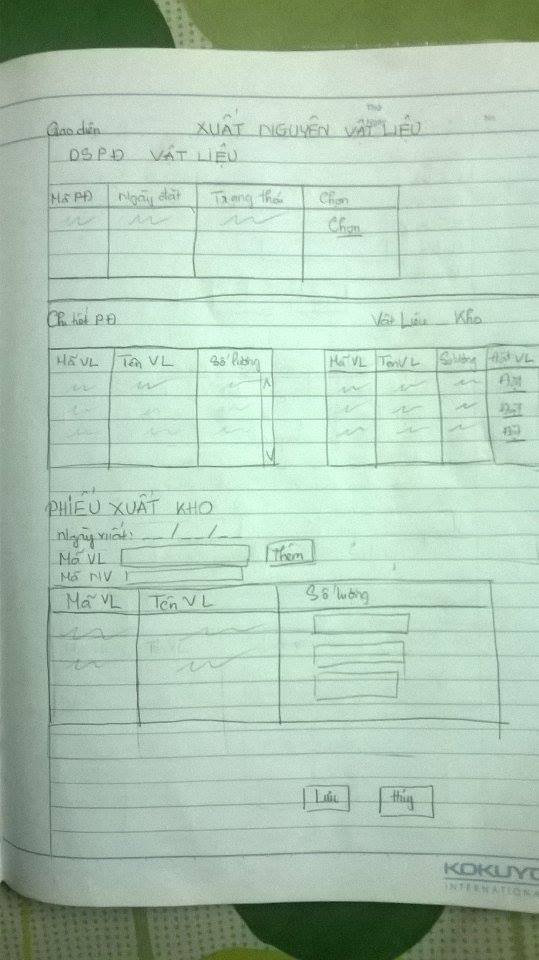 Giao diện XUẤT NGUYÊN VẬT LIỆU
DSPĐ VẬT LIỆU
Mã PĐ Ngày đặt Trạng thái Chọn
Chọn
Chi tiết PĐ Vật Liệu Kho
Mã VL Tên VL Số lượng Mã VL Tên VL Số lượng Đặt VL
Đặt
Đặt
Đặt
PHIẾU XUẤT KHO
Ngày xuất: __/__/__
Mã VL Thêm
Mã NV
Mã VL Tên VL Số lượng
Lưu Hủy
KOKUYO
INTERNATIONA